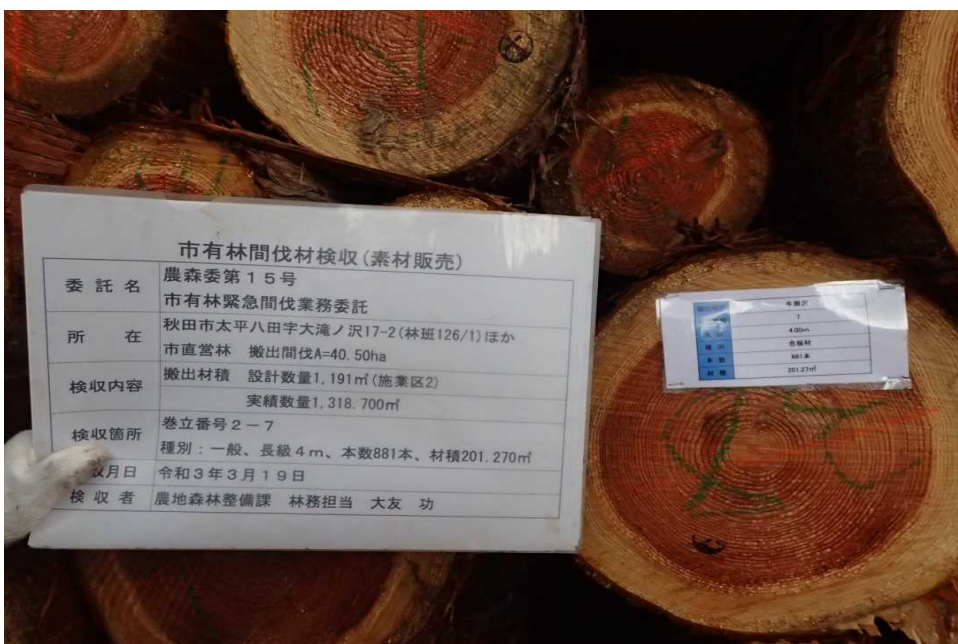 市有林間伐材検収(素材販売)
委託名 農森委第15号
市有林緊急間伐業務委託
所在 秋田市太平八田字大滝ノ沢17-2(林班126/1)ほか
市直営林 搬出間伐A=40.50ha
検収内容 搬出材積 設計数量1,191㎥(施業区2)
実績数量1,318.700㎥
検収箇所 巻立番号2-7
種別:一般、長級4m、本数881本、材積201.270㎥
月日 令和3年3月19日
検収者 農地森林整備課 林務担当 大友 功
7
4.00m
合板材
本数 881本
材積 201.27㎥